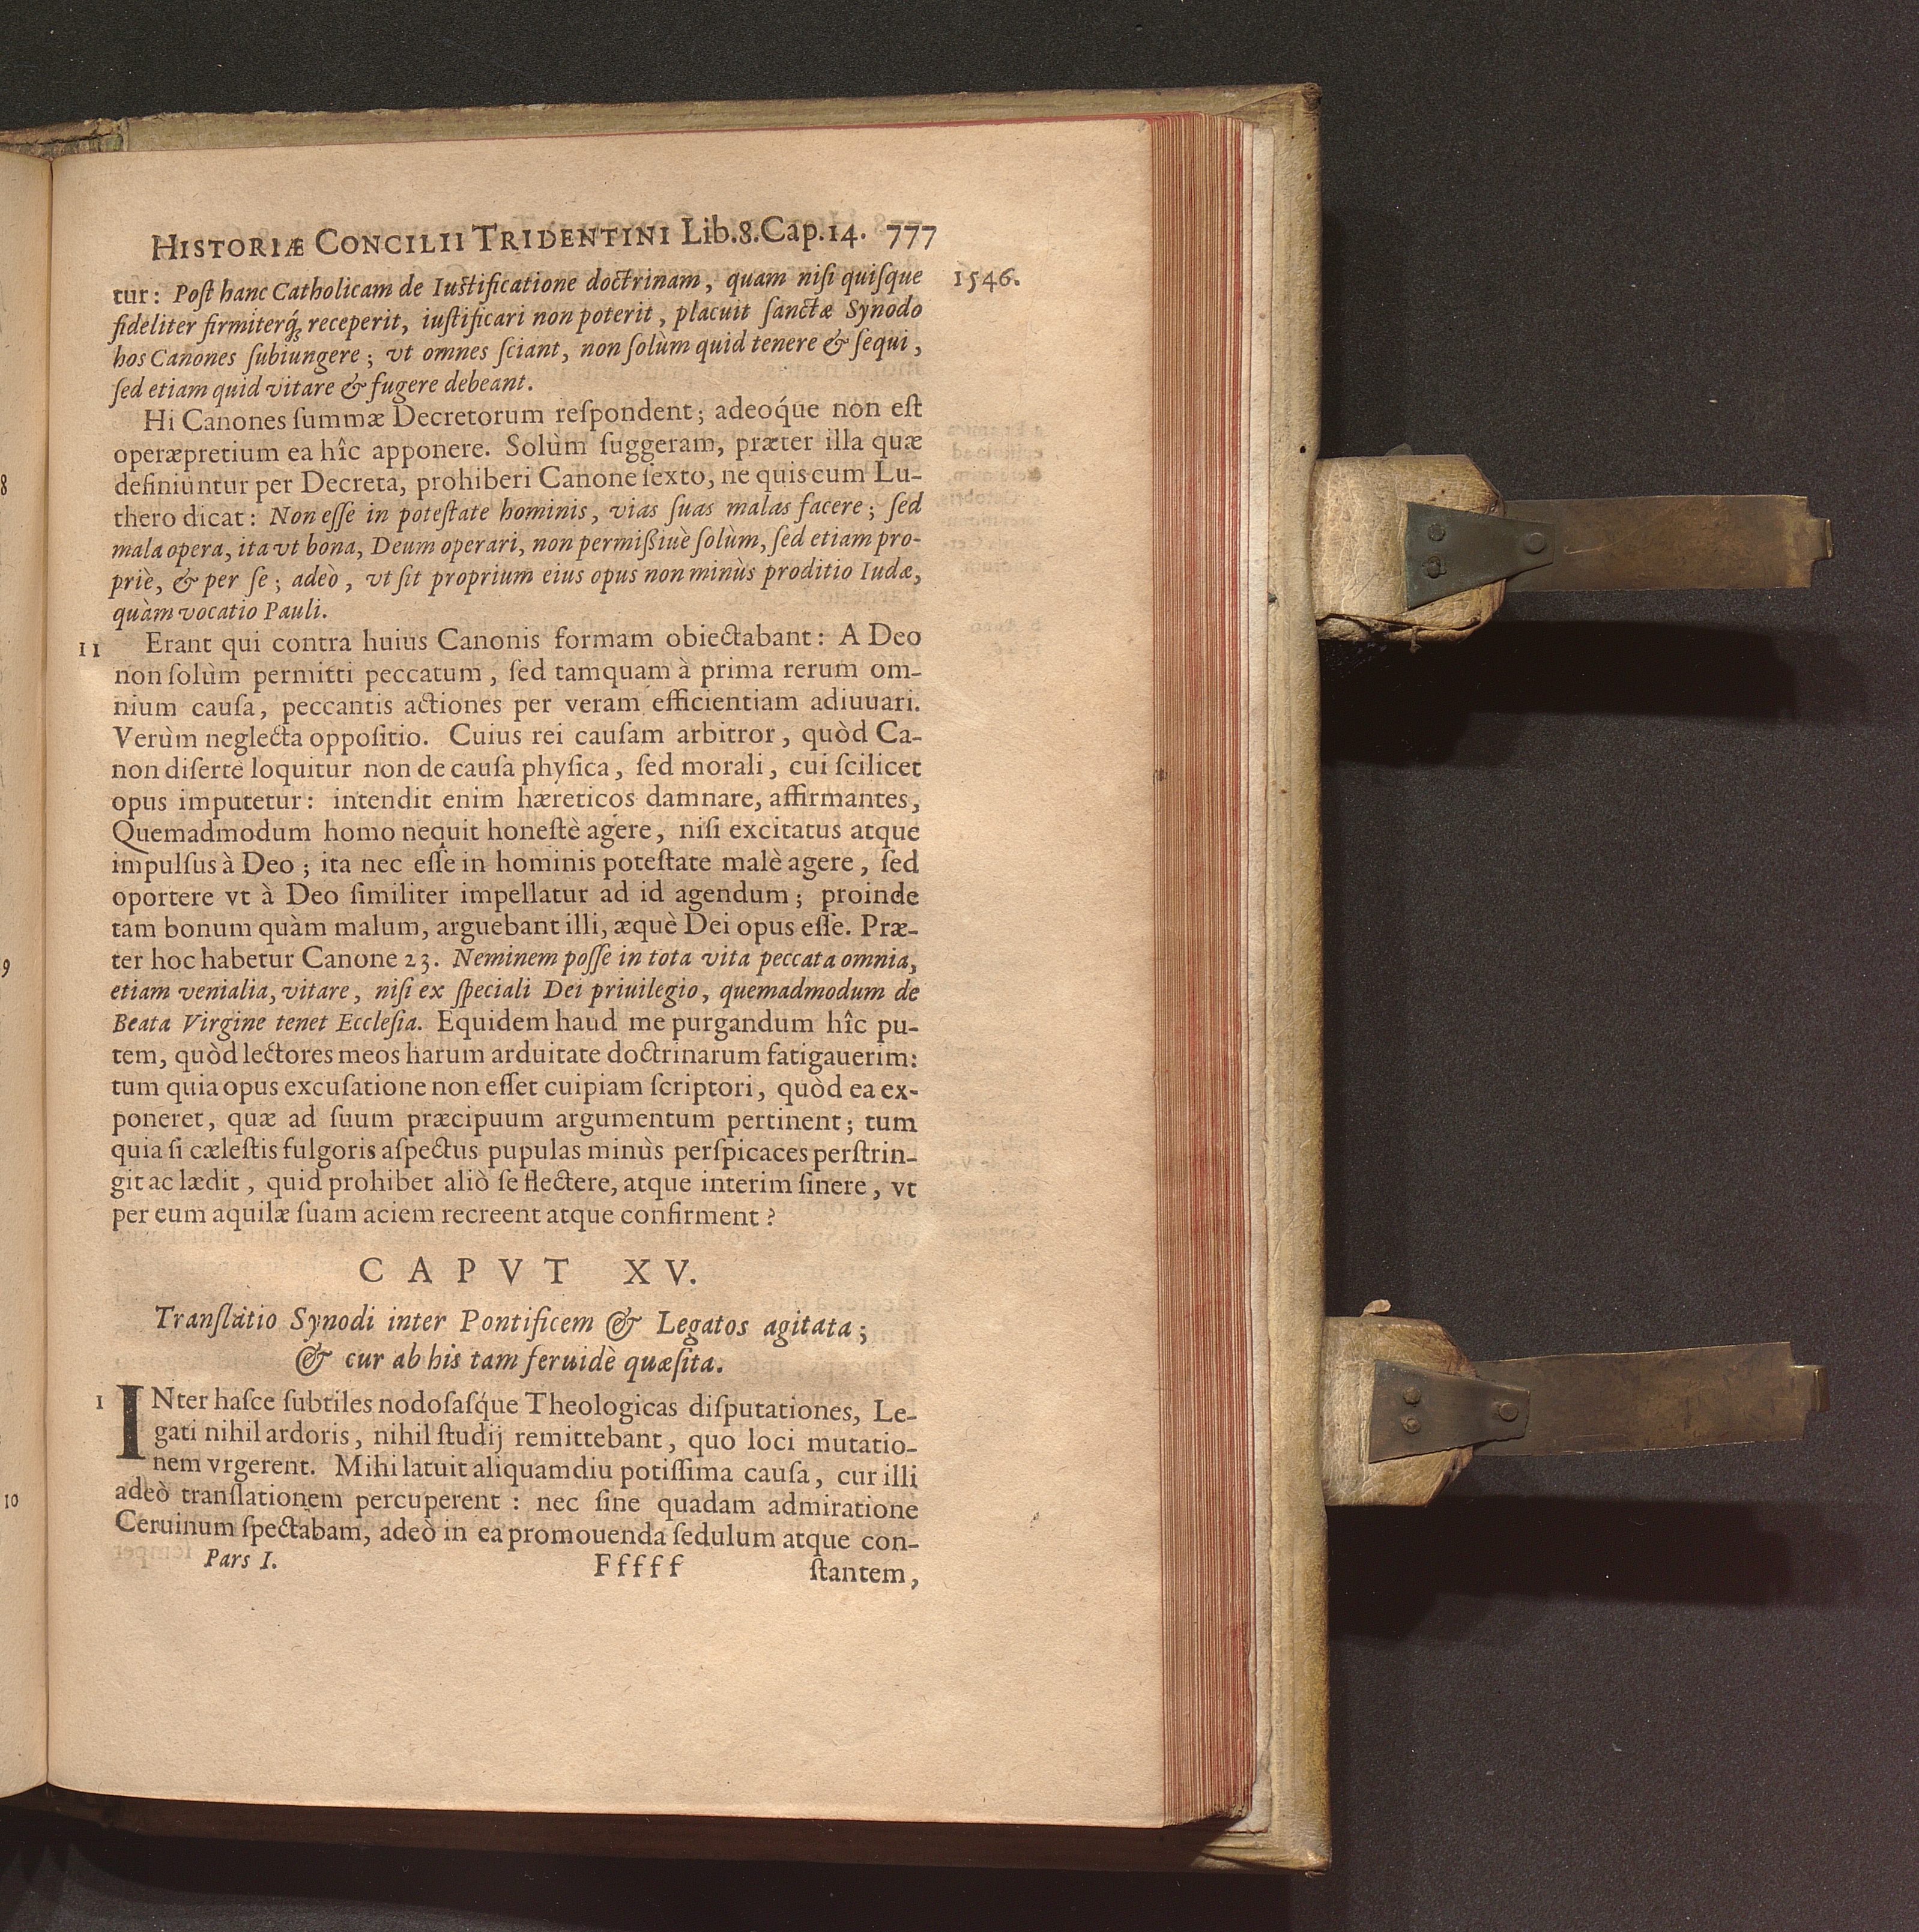 HISTORIÆ CONCILII TRIDENTINI Lib.8.Cap.14. 777
1546.
tur: Poſt hanc Catholicam de Iuſtificatione doctrinam, quam niſi quiſque
fideliter firmiterq́; receperit, iuſtificari non poterit, placuit ſanctæ Synodo
hos Canones ſubiungere; vt omnes ſciant, non ſolùm quid tenere & ſequi,
ſed etiam quid vitare & fugere debeant.
Hi Canones ſummæ Decretorum reſpondent; adeoq́ue non eſt
operæpretium ea hîc apponere. Solùm ſuggeram, præter illa quæ
definiuntur per Decreta, prohiberi Canone ſexto, ne quis cum Lu-
thero dicat: Non eſſe in poteſtate hominis, vias ſuas malas facere; ſed
mala opera, ita vt bona, Deum operari, non permißiuè ſolùm, ſed etiam pro-
priè, & per ſe; adeò, vt ſit proprium eius opus non minùs proditio Iudæ,
quàm vocatio Pauli.
11 Erant qui contra huius Canonis formam obiectabant: A Deo
non ſolùm permitti peccatum, ſed tamquam à prima rerum om-
nium cauſa, peccantis actiones per veram efficientiam adiuuari.
Verùm neglecta oppoſitio. Cuius rei cauſam arbitror, quòd Ca-
non diſertè loquitur non de cauſa phyſica, ſed morali, cui ſcilicet
opus imputetur: intendit enim hæreticos damnare, affirmantes,
Quemadmodum homo nequit honeſtè agere, niſi excitatus atque
impulſus à Deo; ita nec eſſe in hominis poteſtate malè agere, ſed
oportere vt à Deo ſimiliter impellatur ad id agendum; proinde
tam bonum quàm malum, arguebant illi, æquè Dei opus eſſe. Præ-
ter hoc habetur Canone 23. Neminem poſſe in tota vita peccata omnia,
etiam venialia, vitare, niſi ex ſpeciali Dei priuilegio, quemadmodum de
Beata Virgine tenet Eccleſia. Equidem haud me purgandum hîc pu-
tem, quòd lectores meos harum arduitate doctrinarum fatigauerim:
tum quia opus excuſatione non eſſet cuipiam ſcriptori, quòd ea ex-
poneret, quæ ad ſuum præcipuum argumentum pertinent; tum
quia ſi cæleſtis fulgoris aſpectus pupulas minùs perſpicaces perſtrin-
git ac lædit, quid prohibet aliò ſe flectere, atque interim ſinere, vt
per eum aquilæ ſuam aciem recreent atque confirment?
CAPVT XV.
Tranſlatio Synodi inter Pontificem & Legatos agitata;
& cur ab his tam feruidè quæſita.
1 INter haſce ſubtiles nodoſaſq́ue Theologicas diſputationes, Le-
gati nihil ardoris, nihil ſtudij remittebant, quo loci mutatio-
nem vrgerent. Mihi latuit aliquamdiu potiſſima cauſa, cur illi
adeò tranſlationem percuperent: nec ſine quadam admiratione
Ceruinum ſpectabam, adeò in ea promouenda ſedulum atque con-
Pars I. Fffff ſtantem,
8
9
10